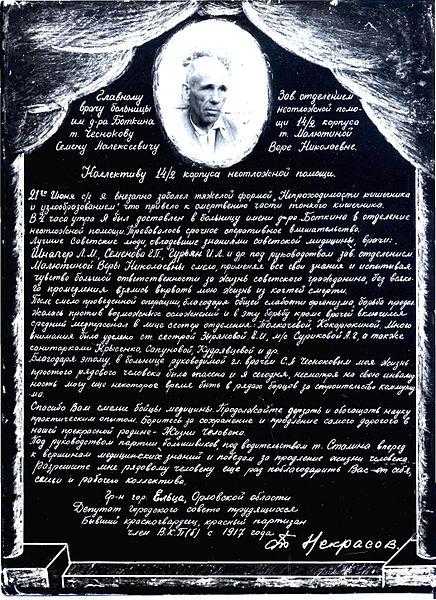 Главному
врачу больницы
им д-ра Боткина
т. Чеснокову
Семену Алексеевичу
Зав. отделением
неотложной помо-
щи 14/2 корпуса
т. Малютиной
Вере Николаевне.
Коллективу 14/2 корпуса неотложной помощи.
21го Июня с/г Я внезапно заболел тяжелой формой „Непроходимости кишечника
и изломобразованием", что привело к омертвению части тонкого кишечника.
В 4 часа утра Я был доставлен в больницу имени д-ра Боткина в отделение
неотложной помощи. Требовалось срочное оперативное вмешательство.
Лучшие советские люди, овладевшие знаниями советской медицины, врачи:
Шнапер Л.М, Семенова Г.П., Гурьян И.Л. и др под руководством зав. отделением
Малютиной Веры Николаевны смело, применяя все свои знания и испытывая
чувство большой ответственности за жизнь советского гражданина, без всяко-
го промедления взялись вырвать мою жизнь из когтей смерти.
После смело проведенной операции, благодаря общей слабости организма, борьба продол-
жалась против возможных осложнений и в эту борьбу кроме врачей включился
средний медперсонал в лице сестер отделения: Толкачевой, Кокарюкиной. Много
внимания было уделено ст. сестрой Жряковой Е.И, м/с Суриковой А.Г., а также
санитарками Крюченко, Сопуновой, Кудрявцевой и др.
Благодаря этому в больнице руководимой гл. врачем С.А Чесноковым моя жизнь
простого рядового человека была спасена и я сегодня, несмотря на свою инвалид-
ность могу еще некоторое время быть в рядах борцов за строительство коммуниз-
ма.
Спасибо Вам смелые бойцы медицины. Продолжайте дерзать и обогащать науку
практическим опытом. Боритесь за сохранение и продление самого дорогого в
нашей прекрасной родине - Жизни Человека.
Под руководством партии большевиков, под водительством т. Сталина вперед
к вершинам медицинских знаний и победам за продление жизни человека.
Разрешите мне рядовому человеку еще раз поблагодарить Вас от себя,
семьи и рабочего коллектива.
Гр-н гор. Ельца, Орловской области
Депутат городского совета трудящихся
Бывший красногвардеец, красный партизан
член В.К.П(б) с 1917 года
Некрасов